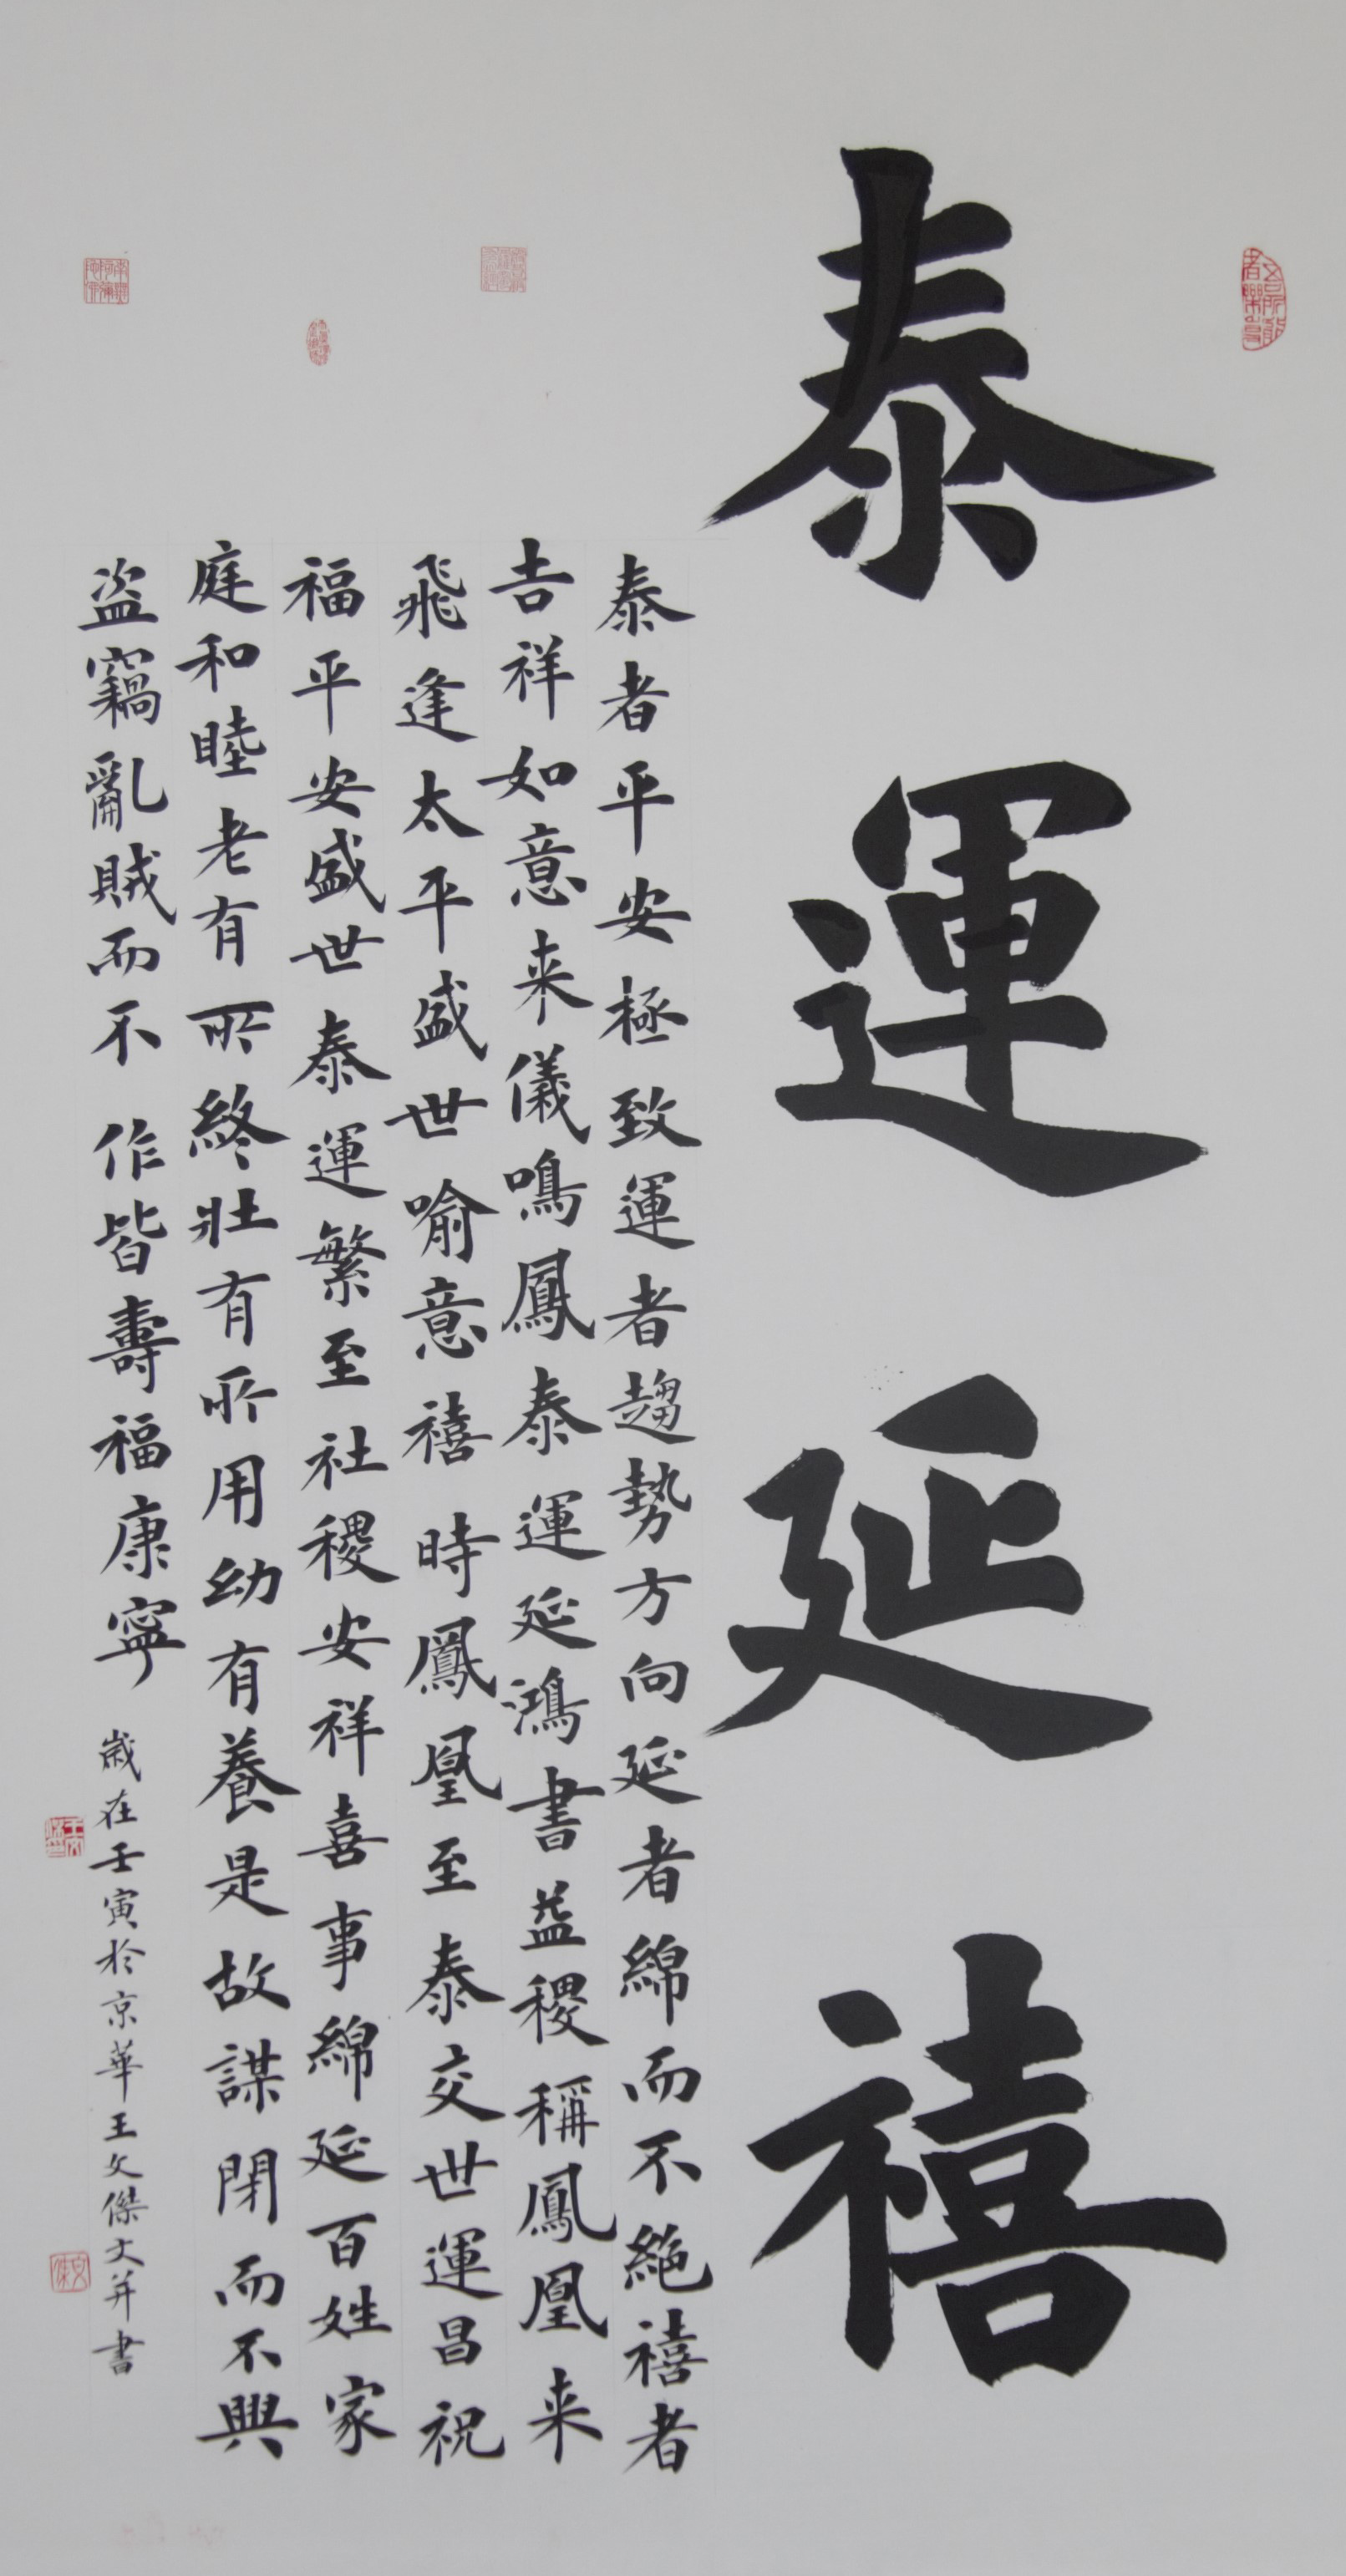 泰運延禧
泰者平安極致運者趨勢方向延者綿而不絕禧者
吉祥如意来儀鳴鳳泰運延鴻書益稷稱鳳凰来
飛逢太平盛世喻意禧時鳳凰至泰交世運昌祝
福平安盛世泰運繁至社稷安祥喜事綿延百姓家
庭和睦老有所終壯有所用幼有養是故謀閉而不興
盗竊亂賊而不作皆壽福康寧
歲在壬寅於京華王文傑文并書